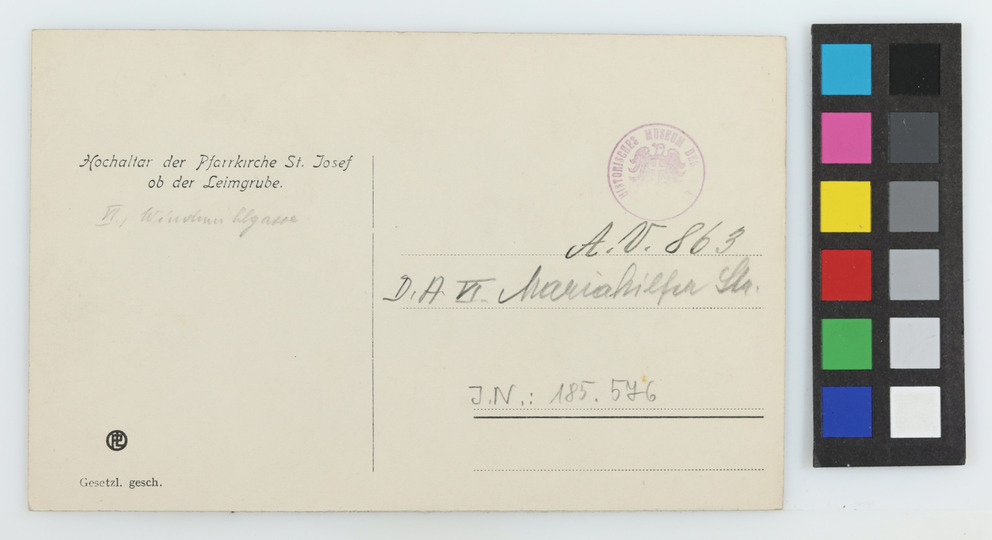 Hochaltar der Pfarrkirche St. Josef
ob der Leimgrube.
VI., Windmühlgasse
HISTORISCHES MUSEUM DER
A.V. 863
D.A VI. Mariahilfer Str.
J.N.: 185.576
PL
Gesetzl. gesch.